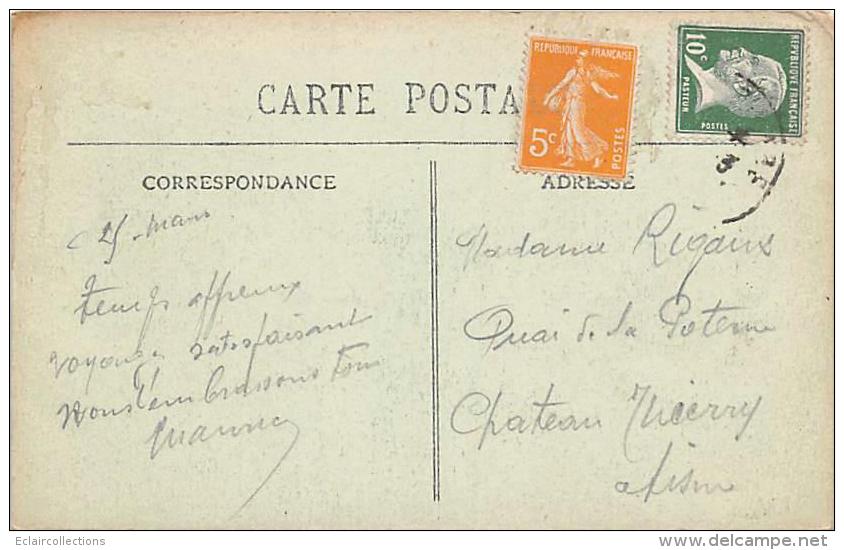 CARTE POSTA
REPUBLIQUE FRANÇAISE
5c
POSTES
10c
PASTEUR
POSTES
REPUBLIQUE FRANÇAISE
CORRESPONDANCE
25 - mars
temps affreux
voyage satisfaisant
Nous t'embrassons tous
Maurice
ADRESSE
Madame Rigaux
Quai de la Poterne
Chateau Thierry
Aisne
Eclaircollections
www.delcampe.net